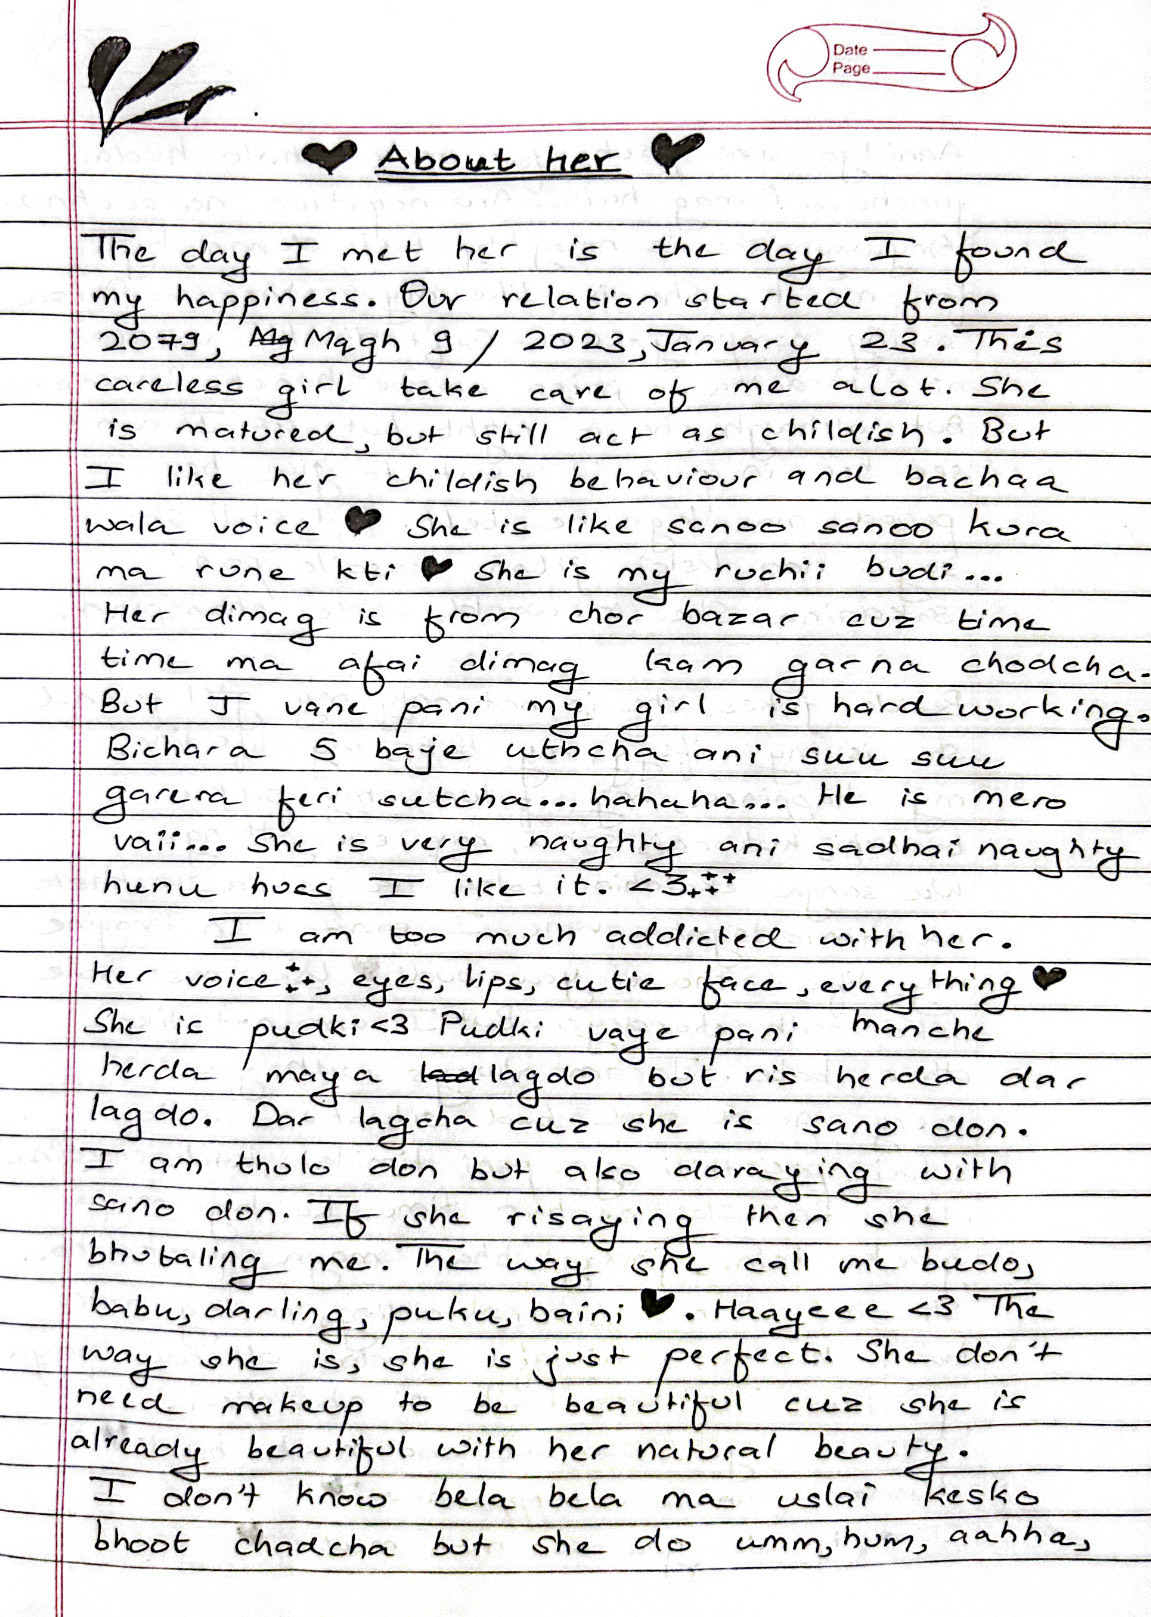 Date
Page
About her
The day I met her is the day I found
my happiness. Our relation started from
2079, Mg Magh 9 / 2023, January 23. This
careless girl take care of me alot. She
is matured, but still act as childish. But
I like her childish behaviour and bachaa
wala voice ♥ She is like sanoo sanoo kura
ma rune kti ♥ She is my ruchii budi...
Her dimag is from chor bazar cuz time
time ma afai dimag kam garna chodcha.
But J vane pani my girl is hard working.
Bichara 5 baje uthcha ani suu suu
garera feri sutcha... hahaha... He is mero
vaii... She is very naughty ani sadhai naughty
hunu hoss I like it. <3
I am too much addicted with her.
Her voice, eyes, lips, cutie face, everything ♥
She is pudki <3 Pudki vaye pani manche
herda maya lad lagdo but ris herda dar
lagdo. Dar lagcha cuz she is sano don.
I am thulo don but also daraying with
sano don. If she risaying then she
bhutaling me. The way she call me budo,
babu, darling, puku, baini ♥. Haayeee <3 The
way she is, she is just perfect. She don't
need makeup to be beautiful cuz she is
already beautiful with her natural beauty.
I don't know bela bela ma uslai kesko
bhoot chadcha but she do umm, hum, aahha,